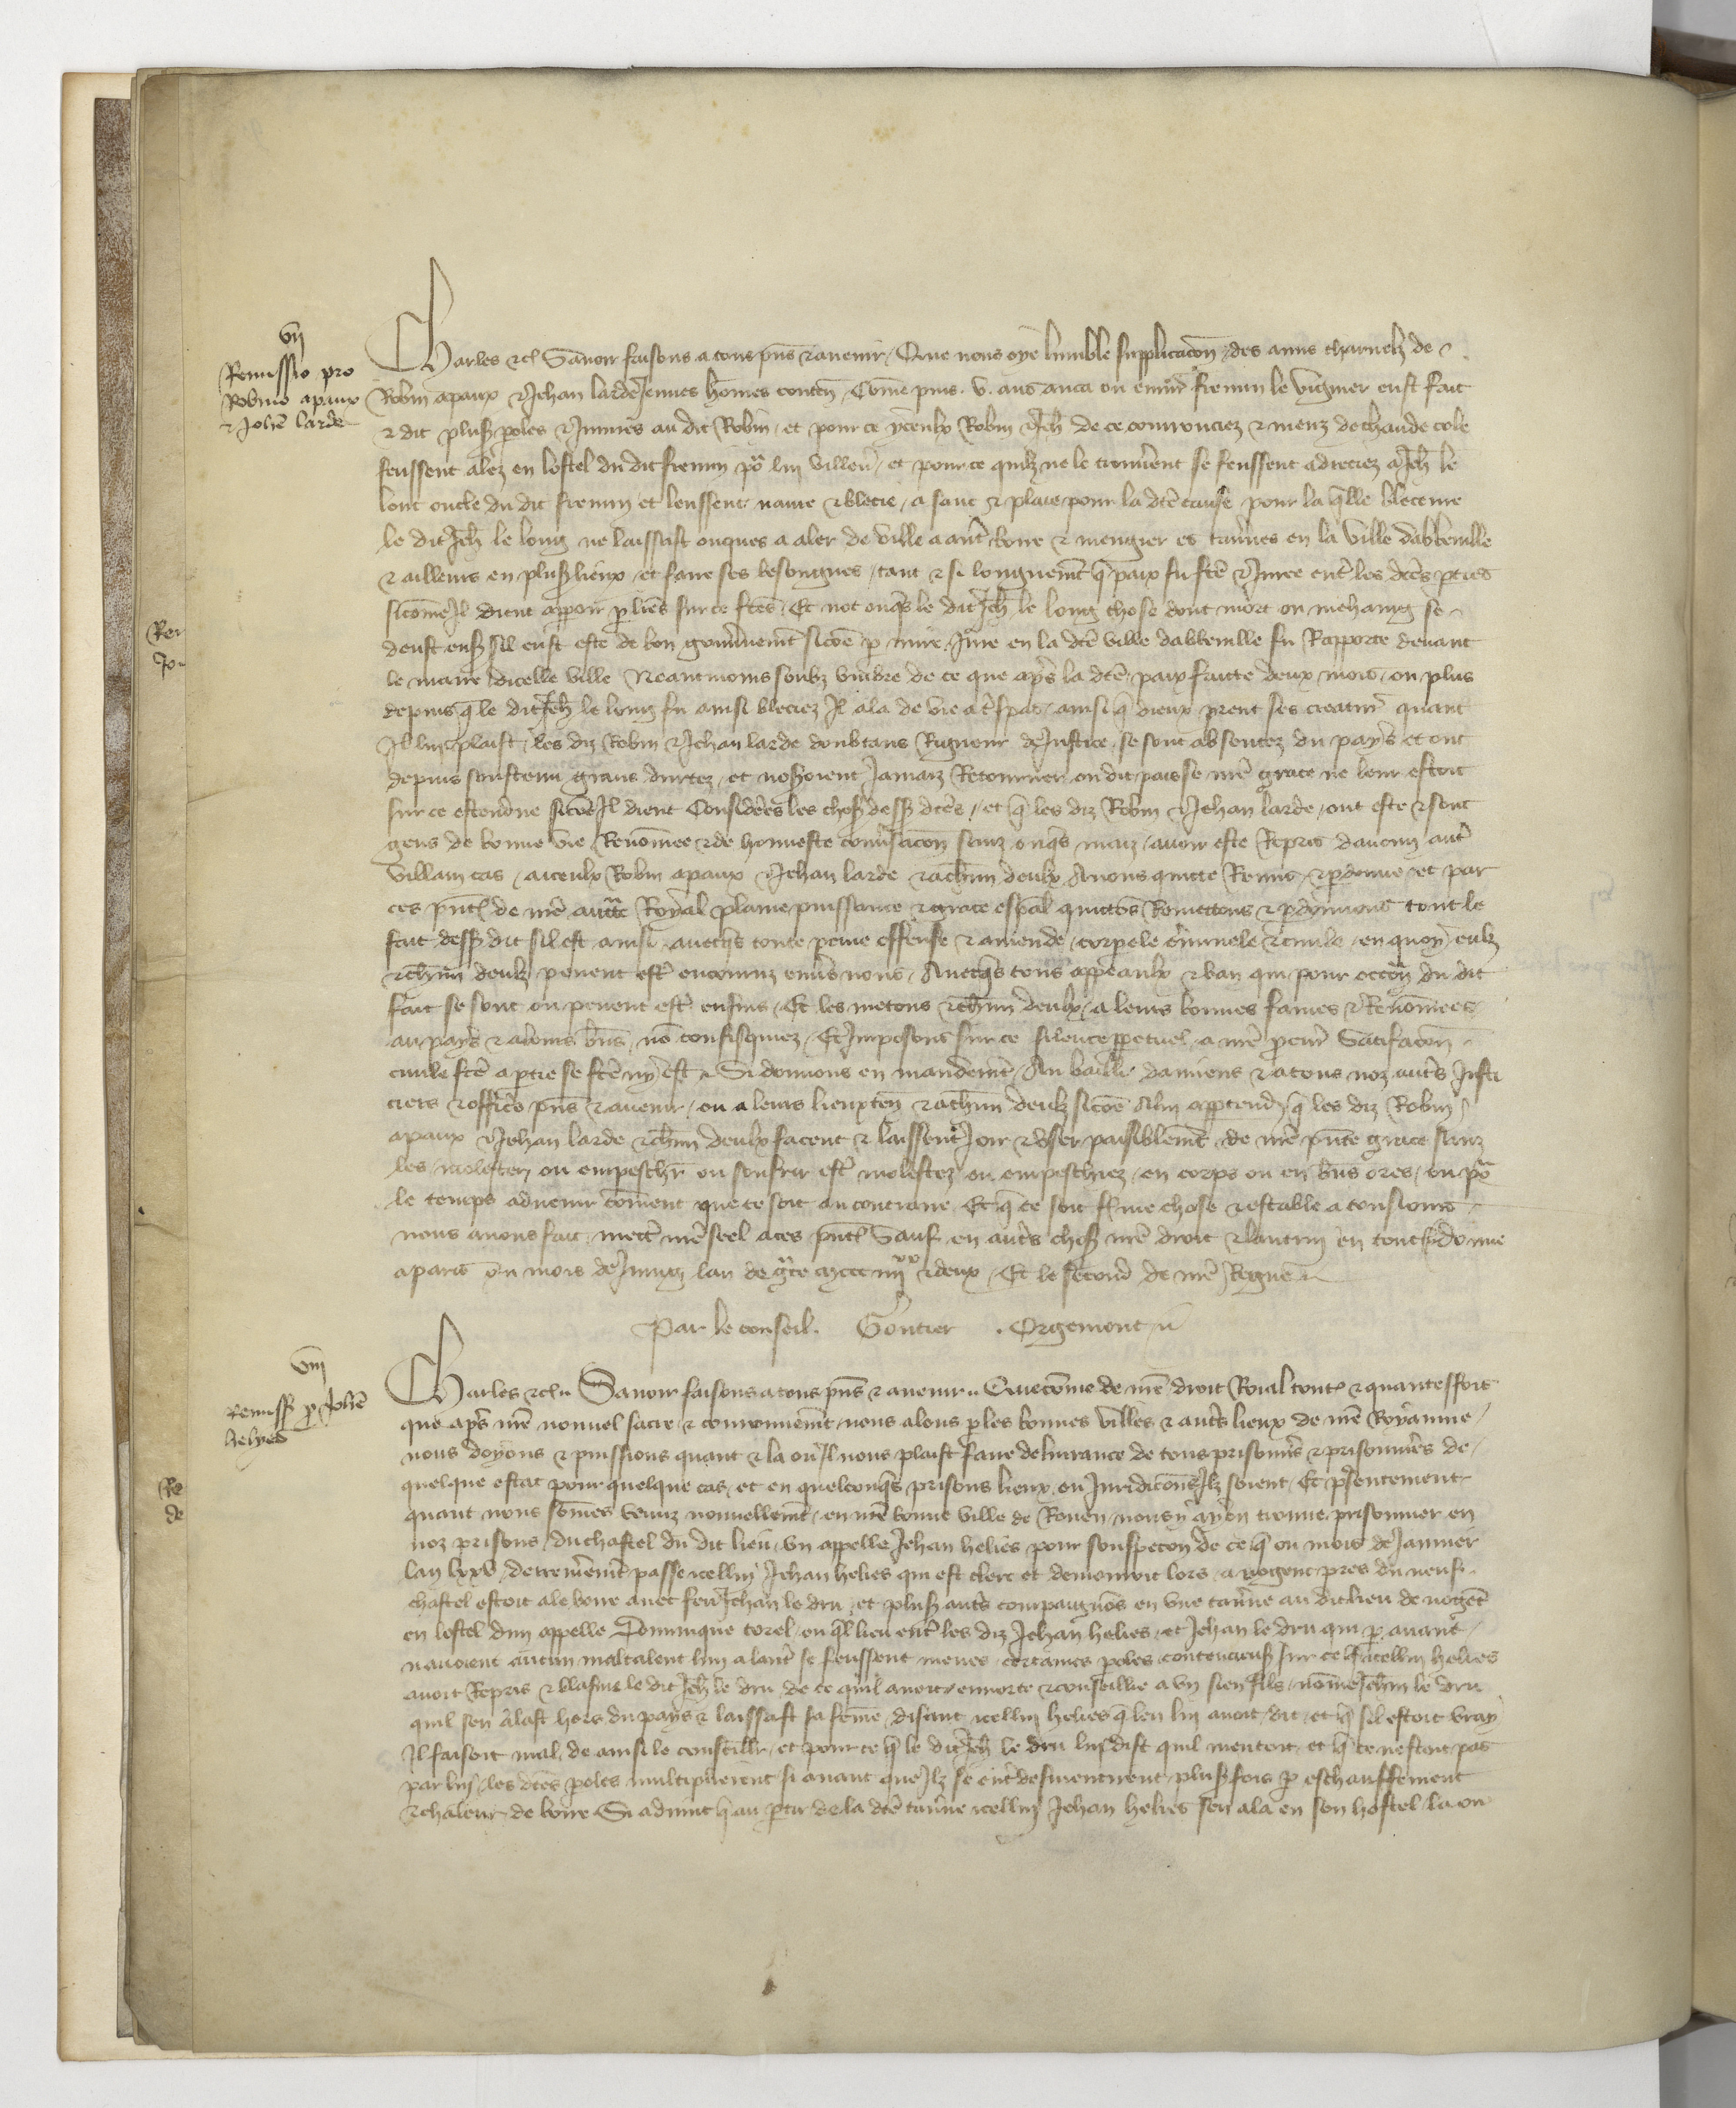 vii
Remissio pro
Robino apaux
& Johe larde
Charles etc Savoir faisons a tous pns & avenir Que nous oye lumble supplicacon des amis charnelz de
Robin apaux & Jehan larde Jeunes homes conten Come puis v. ans enca ou environ fremin le vigner eust fait
& dit plus poles & Iniures au dit Robin et pour ce yceulx Robin & Jeh de ce courrouciez & meuz de chaude cole
feussent alez en lostel du dit fremin po lui villen et pour ce quilz ne le trouverent se feussent adreciez a Jeh le
lonc oncle du dit fremin et leussent navre & blecie a sanc & plaie pour la dce cause pour la qlle bleceure
le dit Jeh le long ne laissast onques a aler de ville a autr boire & mengier es tavnes en la ville dabbeville
& ailleurs en plus lieux et faire ses besongnes tant & si longuemt q paix fu fce & Juree entr les dces pties
sicome Il dient apparoir p lres sur ce fces Et not onqs le dit Jeh le long chose dont mort ou mehaing se
deust ens sil eust este de bon gouvnemt sicoe p mire Jure en la dce ville dabbeville fu Rapporte devant
le maire dicelle ville Neantmoins soubz umbre de ce que aps la dce paix faicte deux mois ou plus
depuis q le dit Jeh le long fu ainsi bleciez Il ala de vie a trspas ainsi q dieux prent ses creatur quant
Il luy plaist les diz Robin & Jehan larde doubtans Rigueur de Justice se sont absentez du pays et ont
depuis soustenu grans durtez et noseroient Jamaiz Retourner ou dit pais se nre grace ne leur estoit
sur ce estendue sicoe Il dient Considerees les chos dess dces et q les diz Robin & Jehan larde ont este & sont
gens de bonne vie Renomee & de honneste convsacon sanz onqs maiz avoir este Repris daucun autr
villain cas a iceulx Robin apaux & Jehan larde & a chun deulx Avons quicte Remis & pdonne et par
ces pntes de nre auctte Royal plaine puissance & grace espal quittons Remettons & pdonnons tout le
fait dess dit sil est ainsi avecqs toute peine offense & amende corpele criminele & civile en quoy eulx
& chun deulx pevent estr encouruz envs nous Avecqs tous appeaulx & ban qui pour occon du dit
fait se sont ou pevent estr ensuis Et les metons & chun deulx a leurs bonnes fames & Renomees
au pays & a leurs bns no confisquez Et Imposons sur ce silence ppetuel a nre pcur Satifacon
civile fce a ptie se fce ny est Si donnons en mandemt Au bailli damiens & a tous noz autrs Justi
ciers & officrs pns & avenir ou a leurs lieuxten & a chun deulx sicoe a lui apptend q les diz Robin
apaux & Jehan larde & chun deulx facent & laissent Joir & user paisiblemt de nre pnte grace sanz
les molester ou empeschr ou soufrir estr molestez ou empeschiez en corps ou en bns ores ou po
le temps advenir coment que ce soit au contraire Et q ce soit ferme chose & estable a tousiours
nous avons fait mectr nre seel a ces pntes Sauf en autrs chos nre droit & lautruy en toutes donne
a paris ou mois de Juing lan de grce m ccc iiii xx & deux Et le second de nre Regne
Par le conseil. Gontier . Orgemont
viii
Remiss p Johe
helyes
Charles etc Savoir faisons a tous pns & avenir Que come de nre droit Roial toutes & quantesfois
que aps nre nouvel sacre & couronnemt nous alons p les bonnes villes & autrs lieux de nre Royaume
nous doyons & puissions quant & la ou Il nous plaist faire delivrance de tous prisoners & prisonnieres de
quelque estat pour quelque cas et en quelconqs prisons lieux ou Juridicons Ilz soient Et psentement
quant nous somes venuz nouvellemt en nre bonne ville de Rouen nous y ayon trouve prisonnier en
noz prisons du chastel du dit lieu un appelle Jehan helies pour souspecon de ce q ou mois de Janvier
lan lxxv derremt passe icellui Jehan helies qui est clerc et demouroit lors a nogent pres du neuf
chastel estoit ale boire avec feu Jehan le dru et plus autrs compaignos en une tavrne au dit lieu de nogent
en lostel dun appelle Dominique torel ou ql lieu entr les diz Jehan helies et Jehan le dru qui p avant
navoient aucun maltalent lun a lautr se feussent meues certaines poles contencieus sur ce q icellui helies
avoit Repris & blasme le dit Jeh le dru de ce quil avoit ennorte & conseillie a un sien fils nome Jehin le dru
quil sen alast hors du pays & laissast sa feme disant icellui helies q len lui avoit dit et q sil estoit vray
Il faisoit mal de ainsi le conseillr et pour ce q le dit Jeh le dru luy dist quil mentoit et q ce nestoit pas
par lui les dces poles multiplierent si avant que Ilz se entrdesmentirent plus fois p eschauffement
& chaleur de boire Si advint q au ptir de la dce tavrne icellui Jehan helies sen ala en son hostel la ou